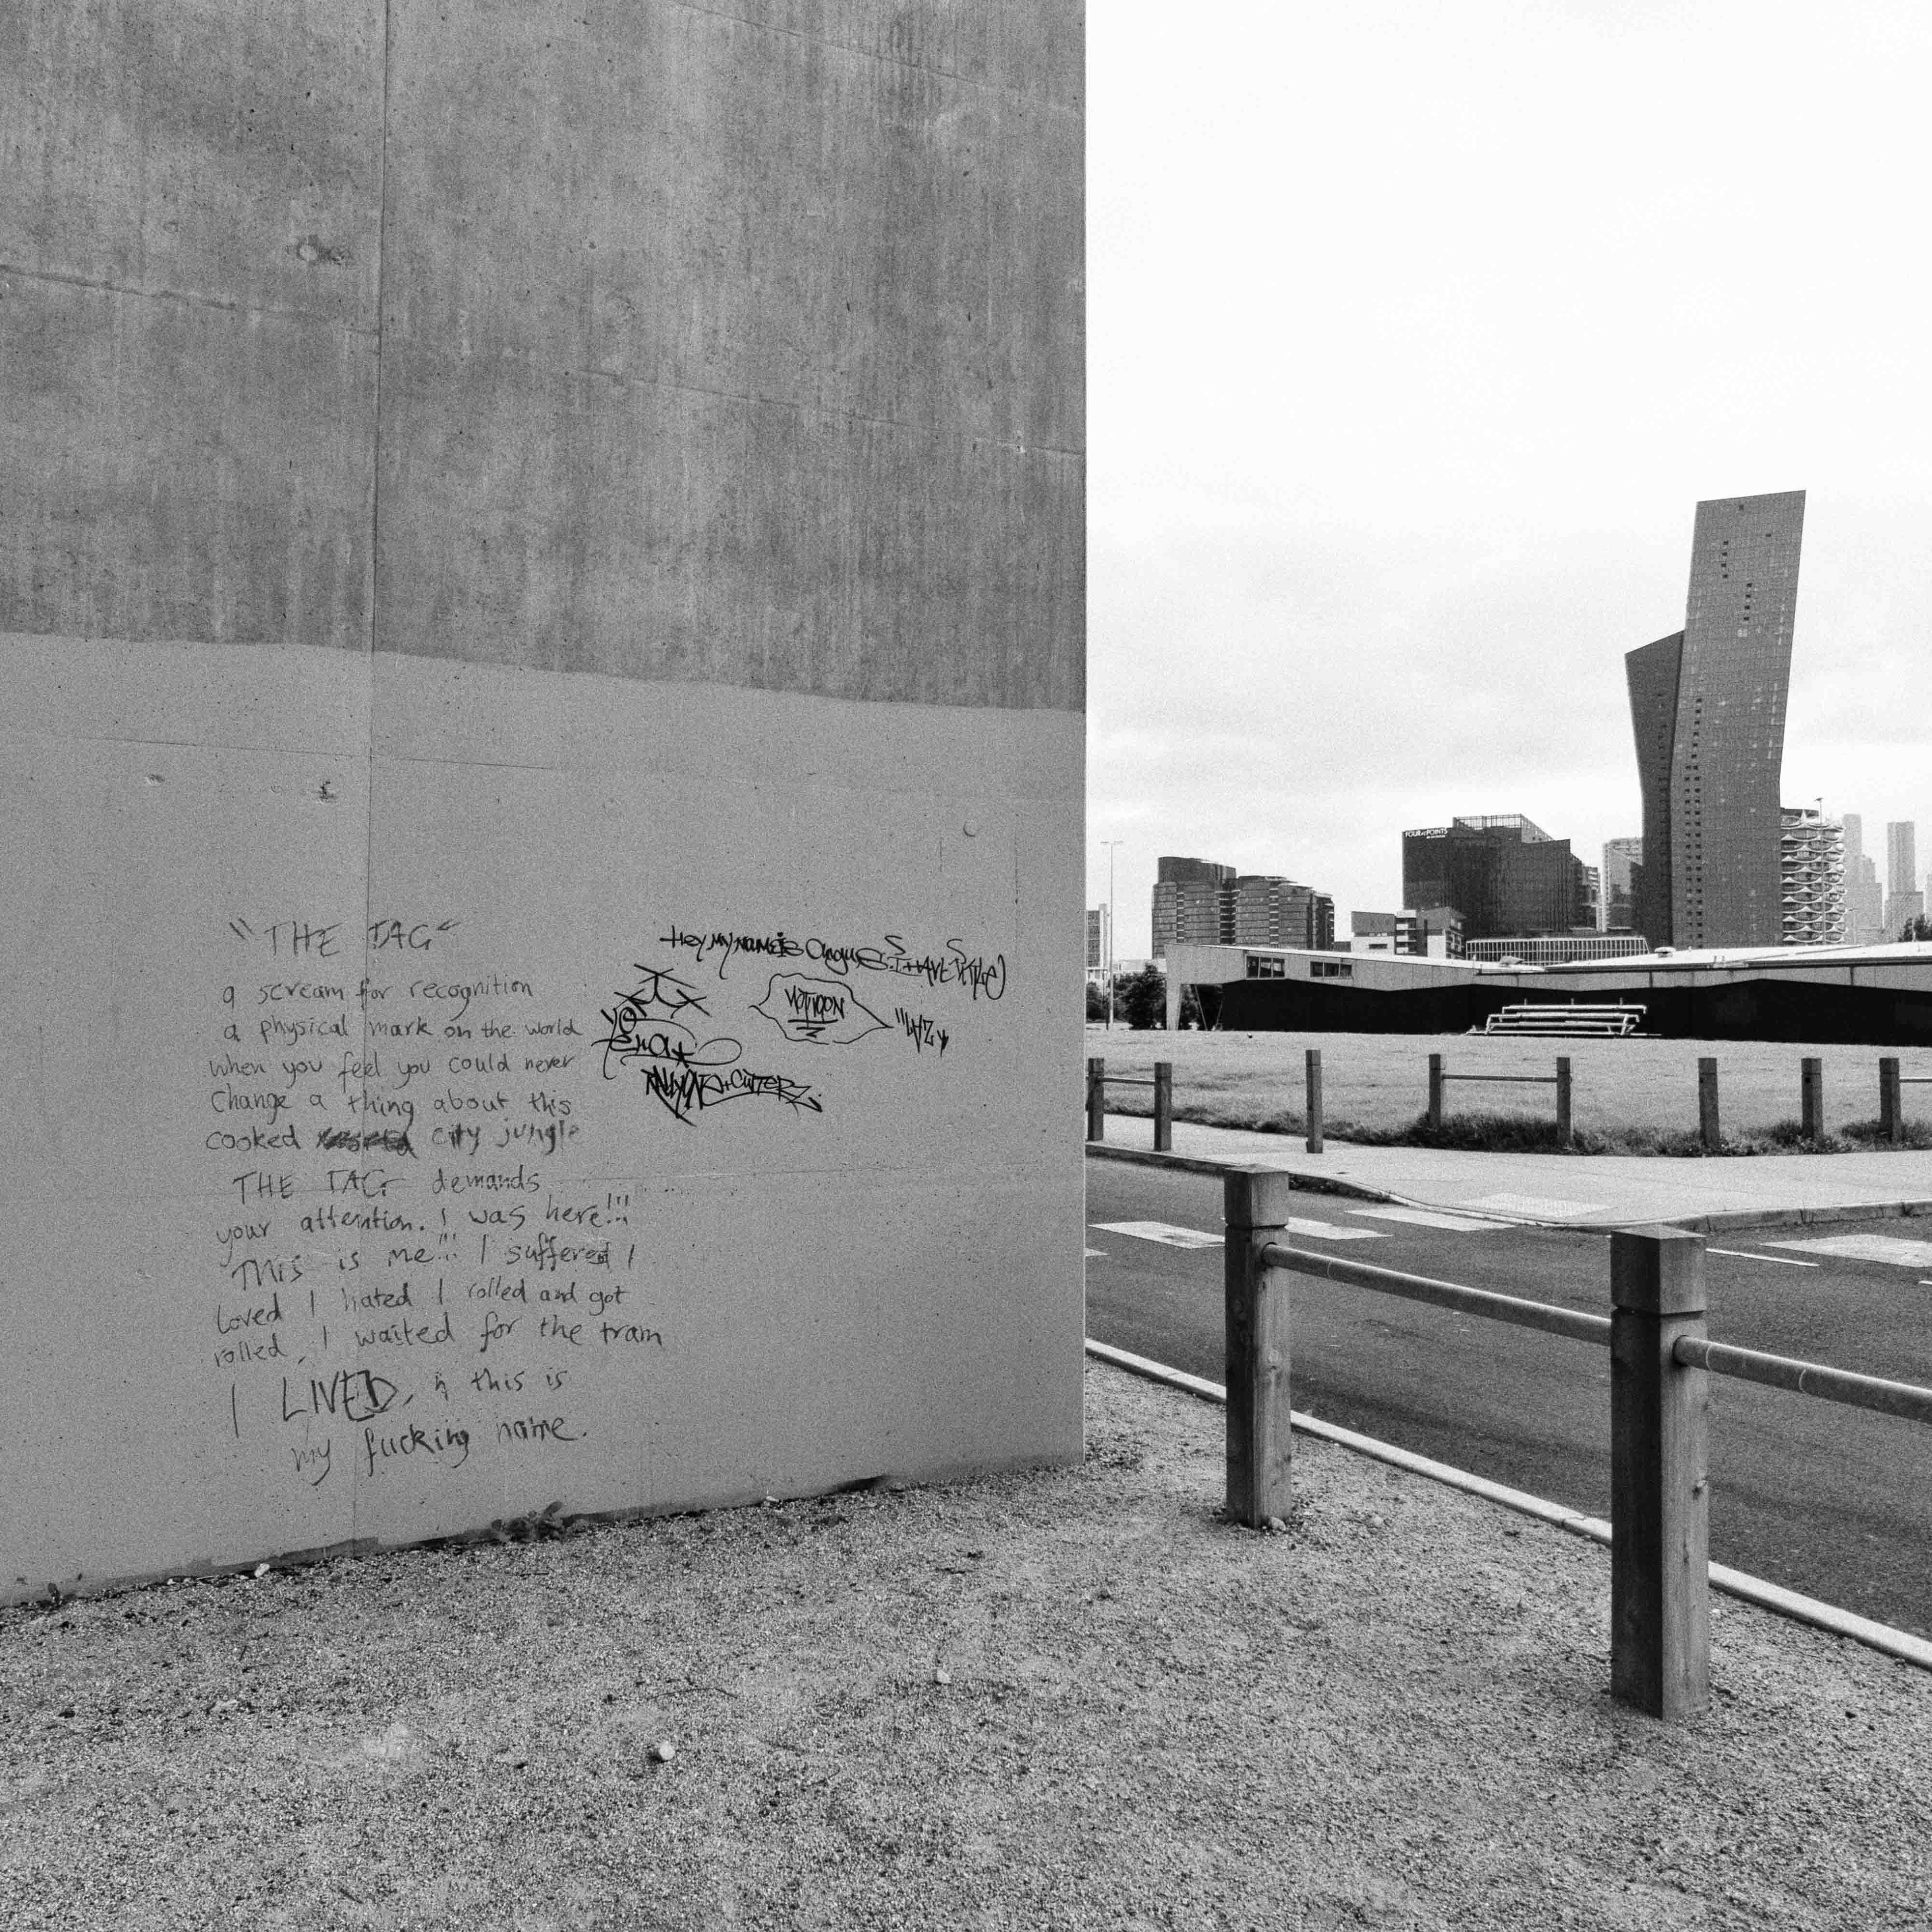 "THE TAG"
a scream for recognition
a physical mark on the world
when you feel you could never
Change a thing about this
cooked city jungle
THE TAG demands
your attention. I was here!!!
This is me!!! I suffered I
Loved I hated I rolled and got
rolled, I waited for the tram
I LIVED, this is
my fucking name.
Hey MY NAME is Angus
RALLYONE + CUTTERZ
FOUR POINTS